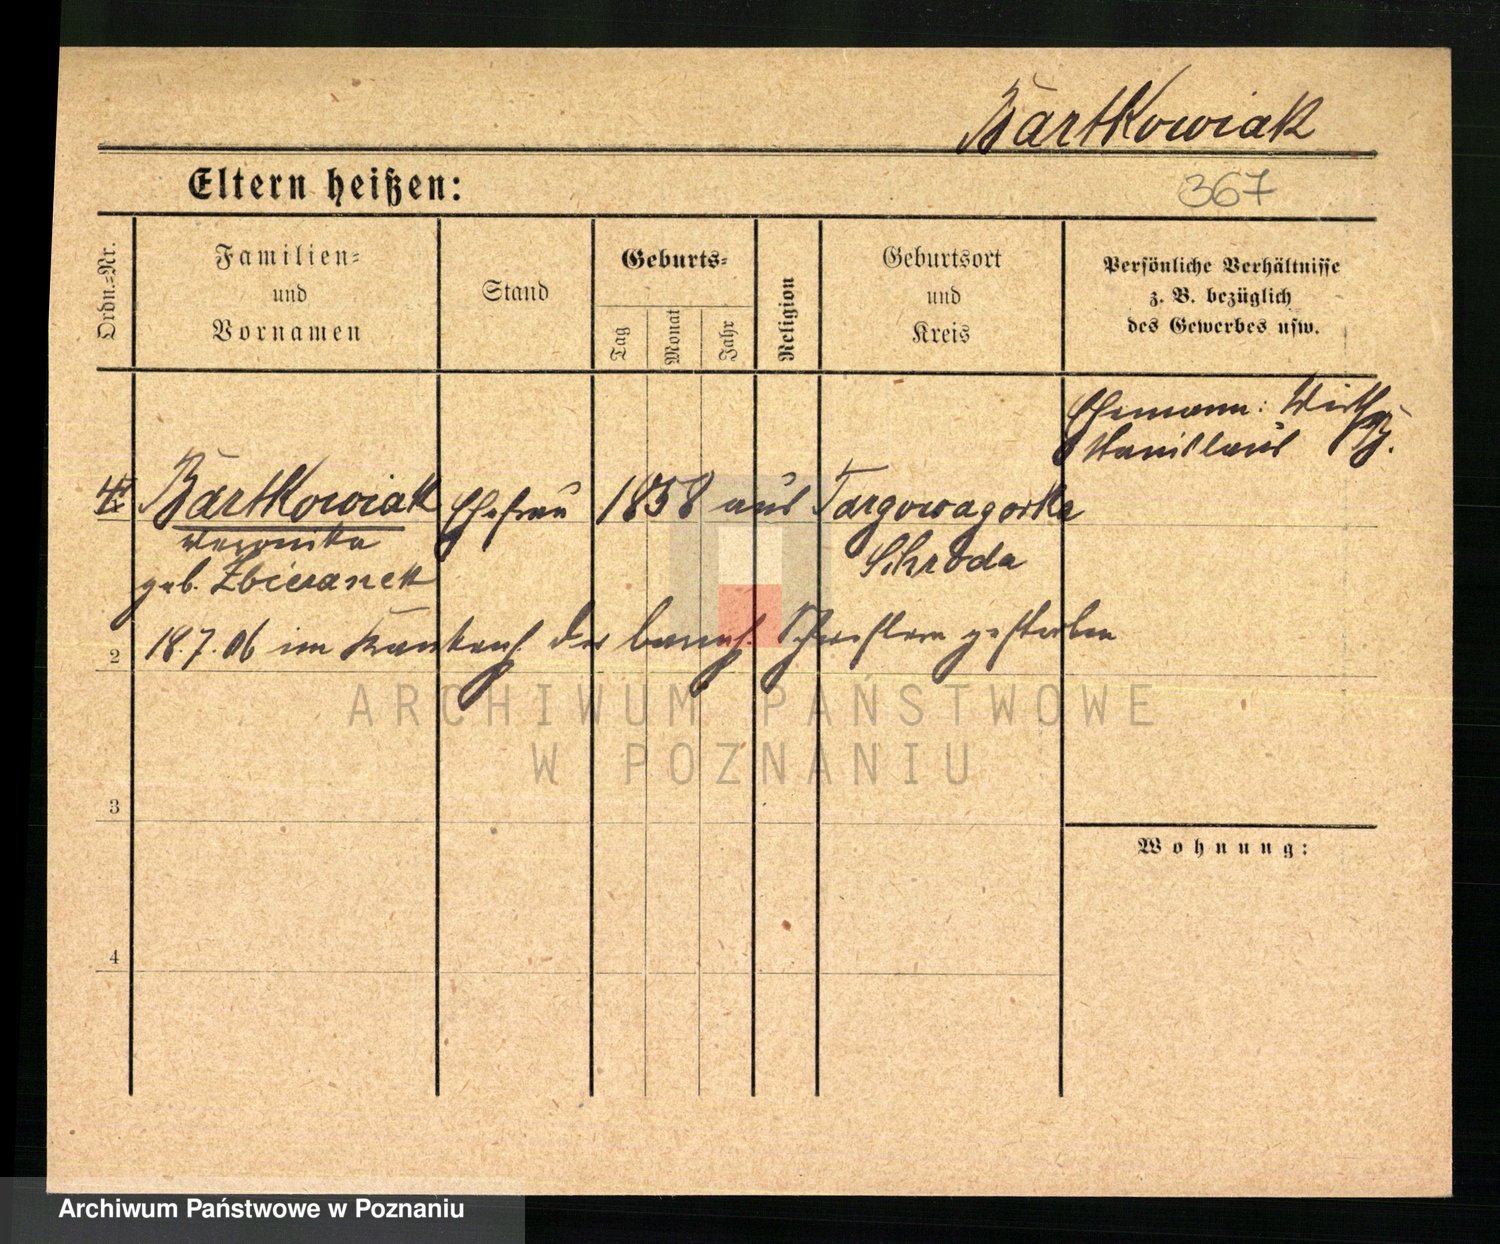 Bartkowiak
Eltern heißen:
367
Ordn.-Nr.
Familien-
und
Vornamen
Stand
Geburts-
Tag
Monat
Jahr
Religion
Geburtsort
und
Kreis
Persönliche Verhältnisse
z. B. bezüglich
des Gewerbes usw.
Ehemann: Wirth
Stanislaus B.
Bartkowiak Ehefrau 1858 aus Targowagorka
Veronika
Schroda
geb. Zbieranek
2 18.7.06 im Krankenh. der barmh. Schwestern gestorben
ARCHIWUM PAŃSTWOWE
W POZNANIU
3
Wohnung:
4
Archiwum Państwowe w Poznaniu